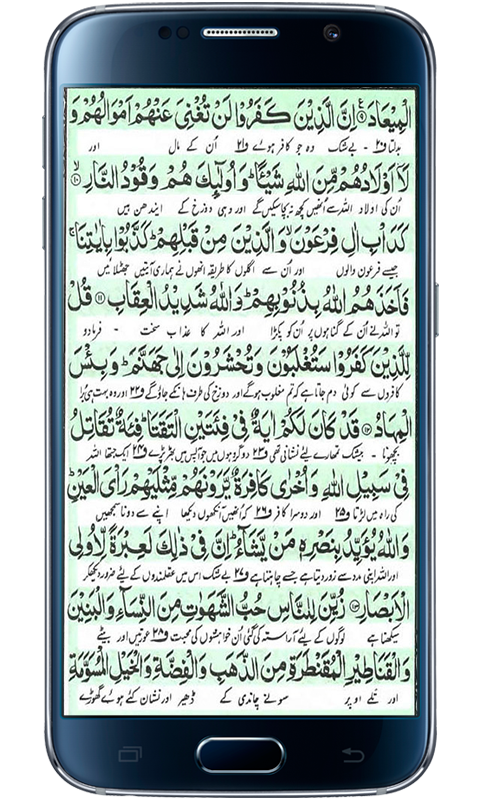 الْمِيْعَادَ ۝ اِنَّ الَّذِيْنَ كَفَرُوْا لَنْ تُغْنِيَ عَنْهُمْ اَمْوَالُهُمْ وَ
بدلتا ف۲۰ - بے شک وہ جو کافر ہوئے ف۲۱ اُن کے مال اور
لَآ اَوْلَادُهُمْ مِّنَ اللهِ شَيْـًٔا ؕ وَ اُولٰٓئِكَ هُمْ وَقُوْدُ النَّارِ ۝۱۰
اُن کی اولاد اللہ سے اُنھیں کچھ نہ بچا سکیں گے اور وہی دوزخ کے ایندھن ہیں
كَدَاْبِ اٰلِ فِرْعَوْنَ ۙ وَ الَّذِيْنَ مِنْ قَبْلِهِمْ ؕ كَذَّبُوْا بِاٰيٰتِنَا ۚ
جیسے فرعون والوں اور اُن سے اگلوں کا طریقہ انھوں نے ہماری آیتیں جھٹلائیں
فَاَخَذَهُمُ اللهُ بِذُنُوْبِهِمْ ؕ وَ اللهُ شَدِيْدُ الْعِقَابِ ۝۱۱ قُلْ
تو اللہ نے اُن کے گناہوں پر اُن کو پکڑا اور اللہ کا عذاب سخت - فرمادو
لِّلَّذِيْنَ كَفَرُوْا سَتُغْلَبُوْنَ وَ تُحْشَرُوْنَ اِلٰى جَهَنَّمَ ؕ وَ بِئْسَ
کافروں سے کوئی دم جاتا ہے کہ تم مغلوب ہوگے اور دوزخ کی طرف ہانکے جاؤ گے ف۲۲ اور وہ بہت ہی بُرا
الْمِهَادُ ۝۱۲ قَدْ كَانَ لَكُمْ اٰيَةٌ فِيْ فِئَتَيْنِ الْتَقَتَا ؕ فِئَةٌ تُقَاتِلُ
بچھونا - بیشک تمھارے لئے نشانی تھی ف۲۳ دو گروہوں میں جو آپس میں بھڑ پڑے ف۲۴ ایک جتھا اللہ
فِيْ سَبِيْلِ اللهِ وَ اُخْرٰى كَافِرَةٌ يَّرَوْنَهُمْ مِّثْلَيْهِمْ رَاْيَ الْعَيْنِ ؕ
کی راہ میں لڑتا ف۲۵ اور دوسرا کافر ف۲۶ کہ اُنھیں آنکھوں دیکھا اپنے سے دونا سمجھیں
وَ اللهُ يُؤَيِّدُ بِنَصْرِهٖ مَنْ يَّشَآءُ ؕ اِنَّ فِيْ ذٰلِكَ لَعِبْرَةً لِّاُولِي
اور اللہ اپنی مدد سے زور دیتا ہے جسے چاہتا ہے ف۲۷ بے شک اس میں عقلمندوں کے لیے ضرور دیکھ کر
الْاَبْصَارِ ۝۱۳ زُيِّنَ لِلنَّاسِ حُبُّ الشَّهَوٰتِ مِنَ النِّسَآءِ وَ الْبَنِيْنَ
سیکھنا ہے لوگوں کے لئے آراستہ کی گئی اُن خواہشوں کی محبت ف۲۸ عورتیں اور بیٹے
وَ الْقَنَاطِيْرِ الْمُقَنْطَرَةِ مِنَ الذَّهَبِ وَ الْفِضَّةِ وَ الْخَيْلِ الْمُسَوَّمَةِ
اور تلے اوپر سونے چاندی کے ڈھیر اور نشان کئے ہوئے گھوڑے